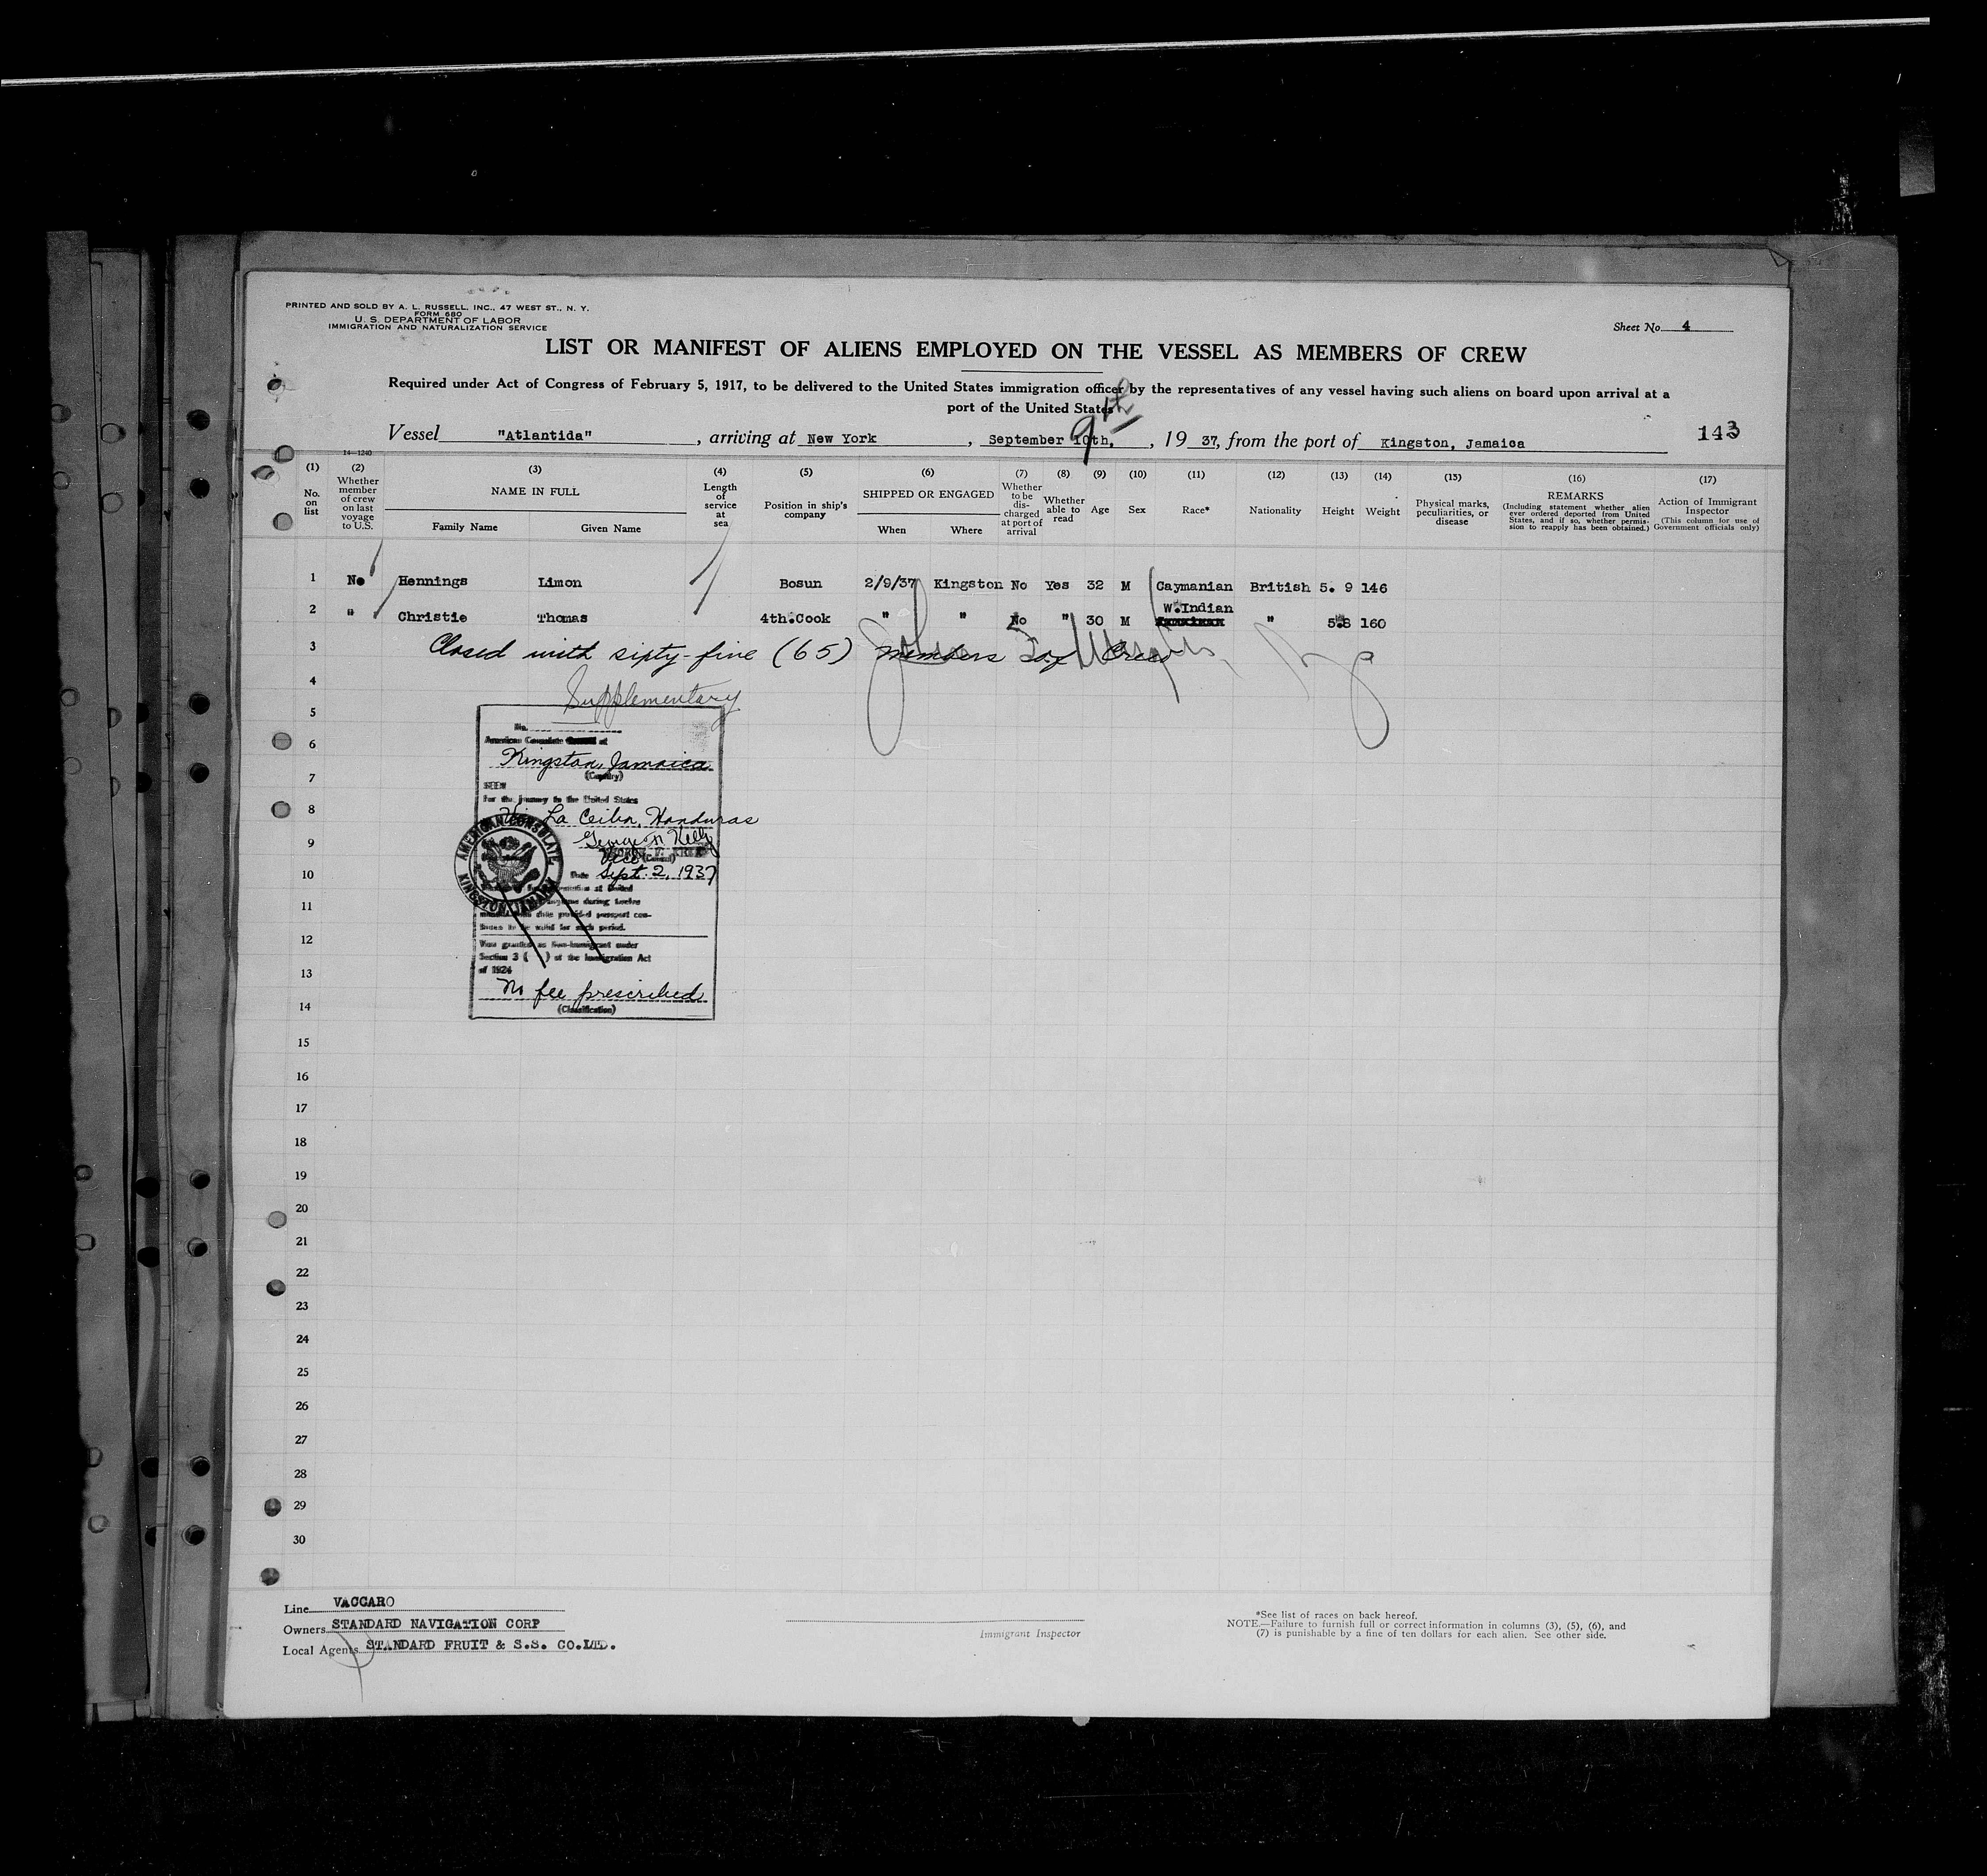 PRINTED AND SOLD BY A. L. RUSSELL, INC., 47 WEST ST., N. Y.
FORM 680
U. S. DEPARTMENT OF LABOR
IMMIGRATION AND NATURALIZATION SERVICE
Sheet No. 4
LIST OR MANIFEST OF ALIENS EMPLOYED ON THE VESSEL AS MEMBERS OF CREW
Required under Act of Congress of February 5, 1917, to be delivered to the United States immigration officer by the representatives of any vessel having such aliens on board upon arrival at a
port of the United States
9th
Vessel "Atlantida" , arriving at New York , September 10th, , 19 37, from the port of Kingston, Jamaica
143
14—1240
(1) (2) (3) (4) (5) (6) (7) (8) (9) (10) (11) (12) (13) (14) (15) (16) (17)
No. on list
Whether member of crew on last voyage to U.S.
NAME IN FULL
Family Name Given Name
Length of service at sea
Position in ship's company
SHIPPED OR ENGAGED
When Where
Whether to be discharged at port of arrival
Whether able to read
Age
Sex
Race*
Nationality
Height
Weight
Physical marks, peculiarities, or disease
REMARKS
(Including statement whether alien ever ordered deported from United States, and if so, whether permission to reapply has been obtained.)
Action of Immigrant Inspector
(This column for use of Government officials only)
1 No Hennings Limon Bosun 2/9/37 Kingston No Yes 32 M Caymanian British 5. 9 146
W.Indian
2 " Christie Thomas 4th.Cook " " No " 30 M " 5.8 160
3 Closed with sixty-five (65) members of Crew
4
Supplementary
5
No.
6
American Consulate General at
Kingston, Jamaica
(Country)
7
SEEN
For the journey to the United States
8
Via La Ceiba, Honduras
9
Vice (Consul)
10
Date Sept. 2, 1937
AMERICAN CONSULATE,
KINGSTON, JAMAICA
11
12
Visa granted as Non-Immigrant under
Section 3 ( ) of the Immigration Act
of 1924
13
No fee prescribed
(Classification)
14
15
16
17
18
19
20
21
22
23
24
25
26
27
28
29
30
Line VACCARO
Owners STANDARD NAVIGATION CORP
Local Agents STANDARD FRUIT & S.S. CO.LTD.
Immigrant Inspector
*See list of races on back hereof.
NOTE.—Failure to furnish full or correct information in columns (3), (5), (6), and
(7) is punishable by a fine of ten dollars for each alien. See other side.